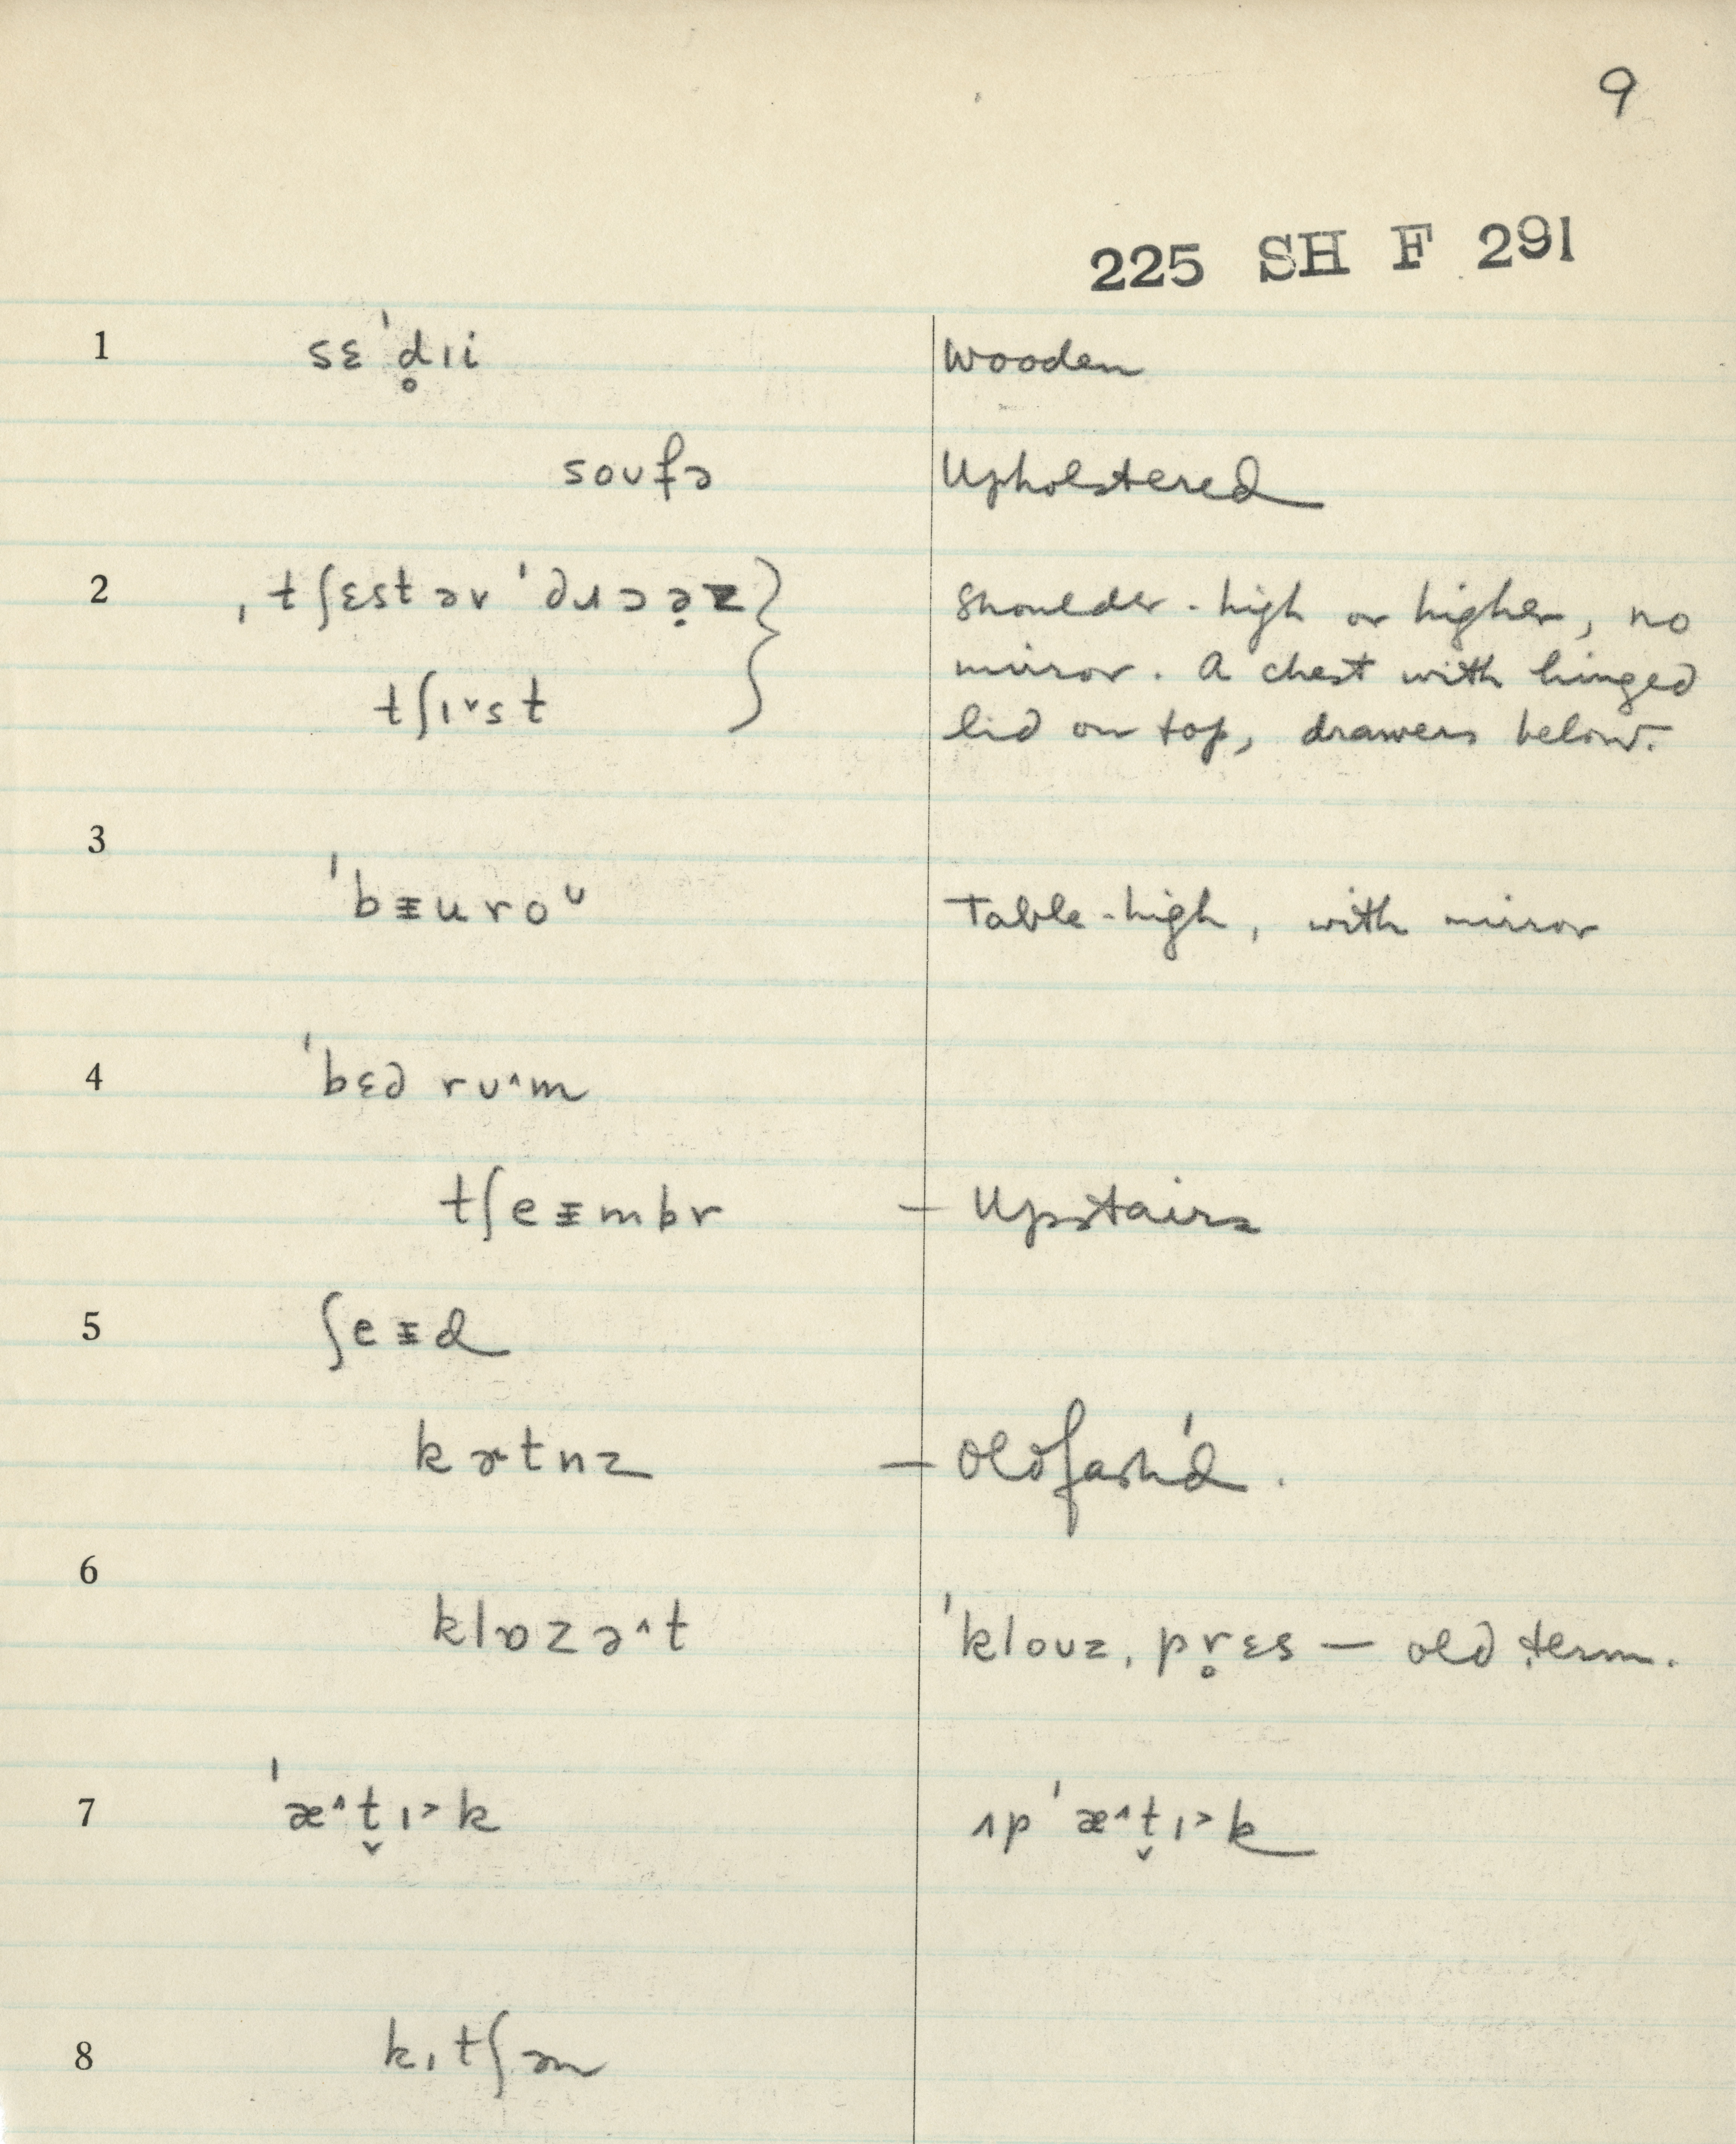 9
225 SH F 291
1 sɛˈd̥ɪi Wooden
soufə Upholstered
2 ˌtʃɛstəvˈdɹɔə̣z } Shoulder-high or higher, no
mirror. A chest with hinged
tʃɪ˅st lid on top, drawers below.
3
ˈbᵻuroᴗ Table-high, with mirror
4 ˈbɛd rʊ^m
tʃeᵻmbr — Upstairs
5 ʃeᵻd
kɚtnz — Oldfash'd.
6
klɒzə^t ˈklouzˌpr̥ɛs — old term.
7 ˈæ^t̬ɪ˃k ʌpˈæ^t̬ɪ˃k
8 kɪtʃən